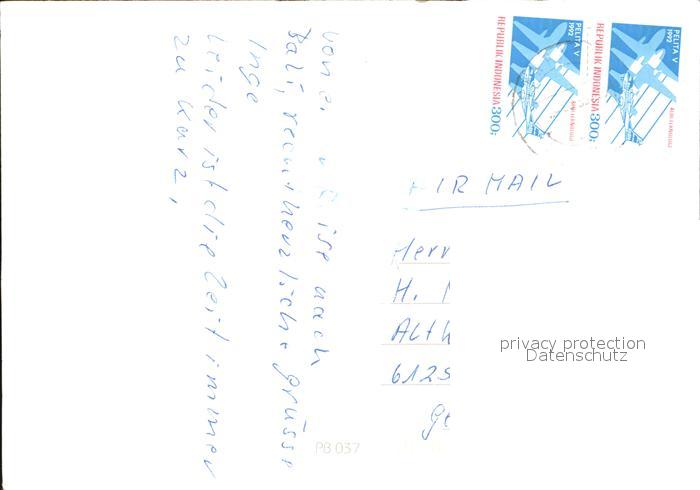 von ei ise nach
Bali, recht herzliche Grüsse
Inge
Leider ist die Zeit immer
zu kurz,
PELITA V
1992
REPUBLIK INDONESIA 300;
PELITA V
1992
REPUBLIK INDONESIA 300;
AIR MAIL
Herr
H.
Alth
6129
Ge
privacy protection
Datenschutz
PB 037